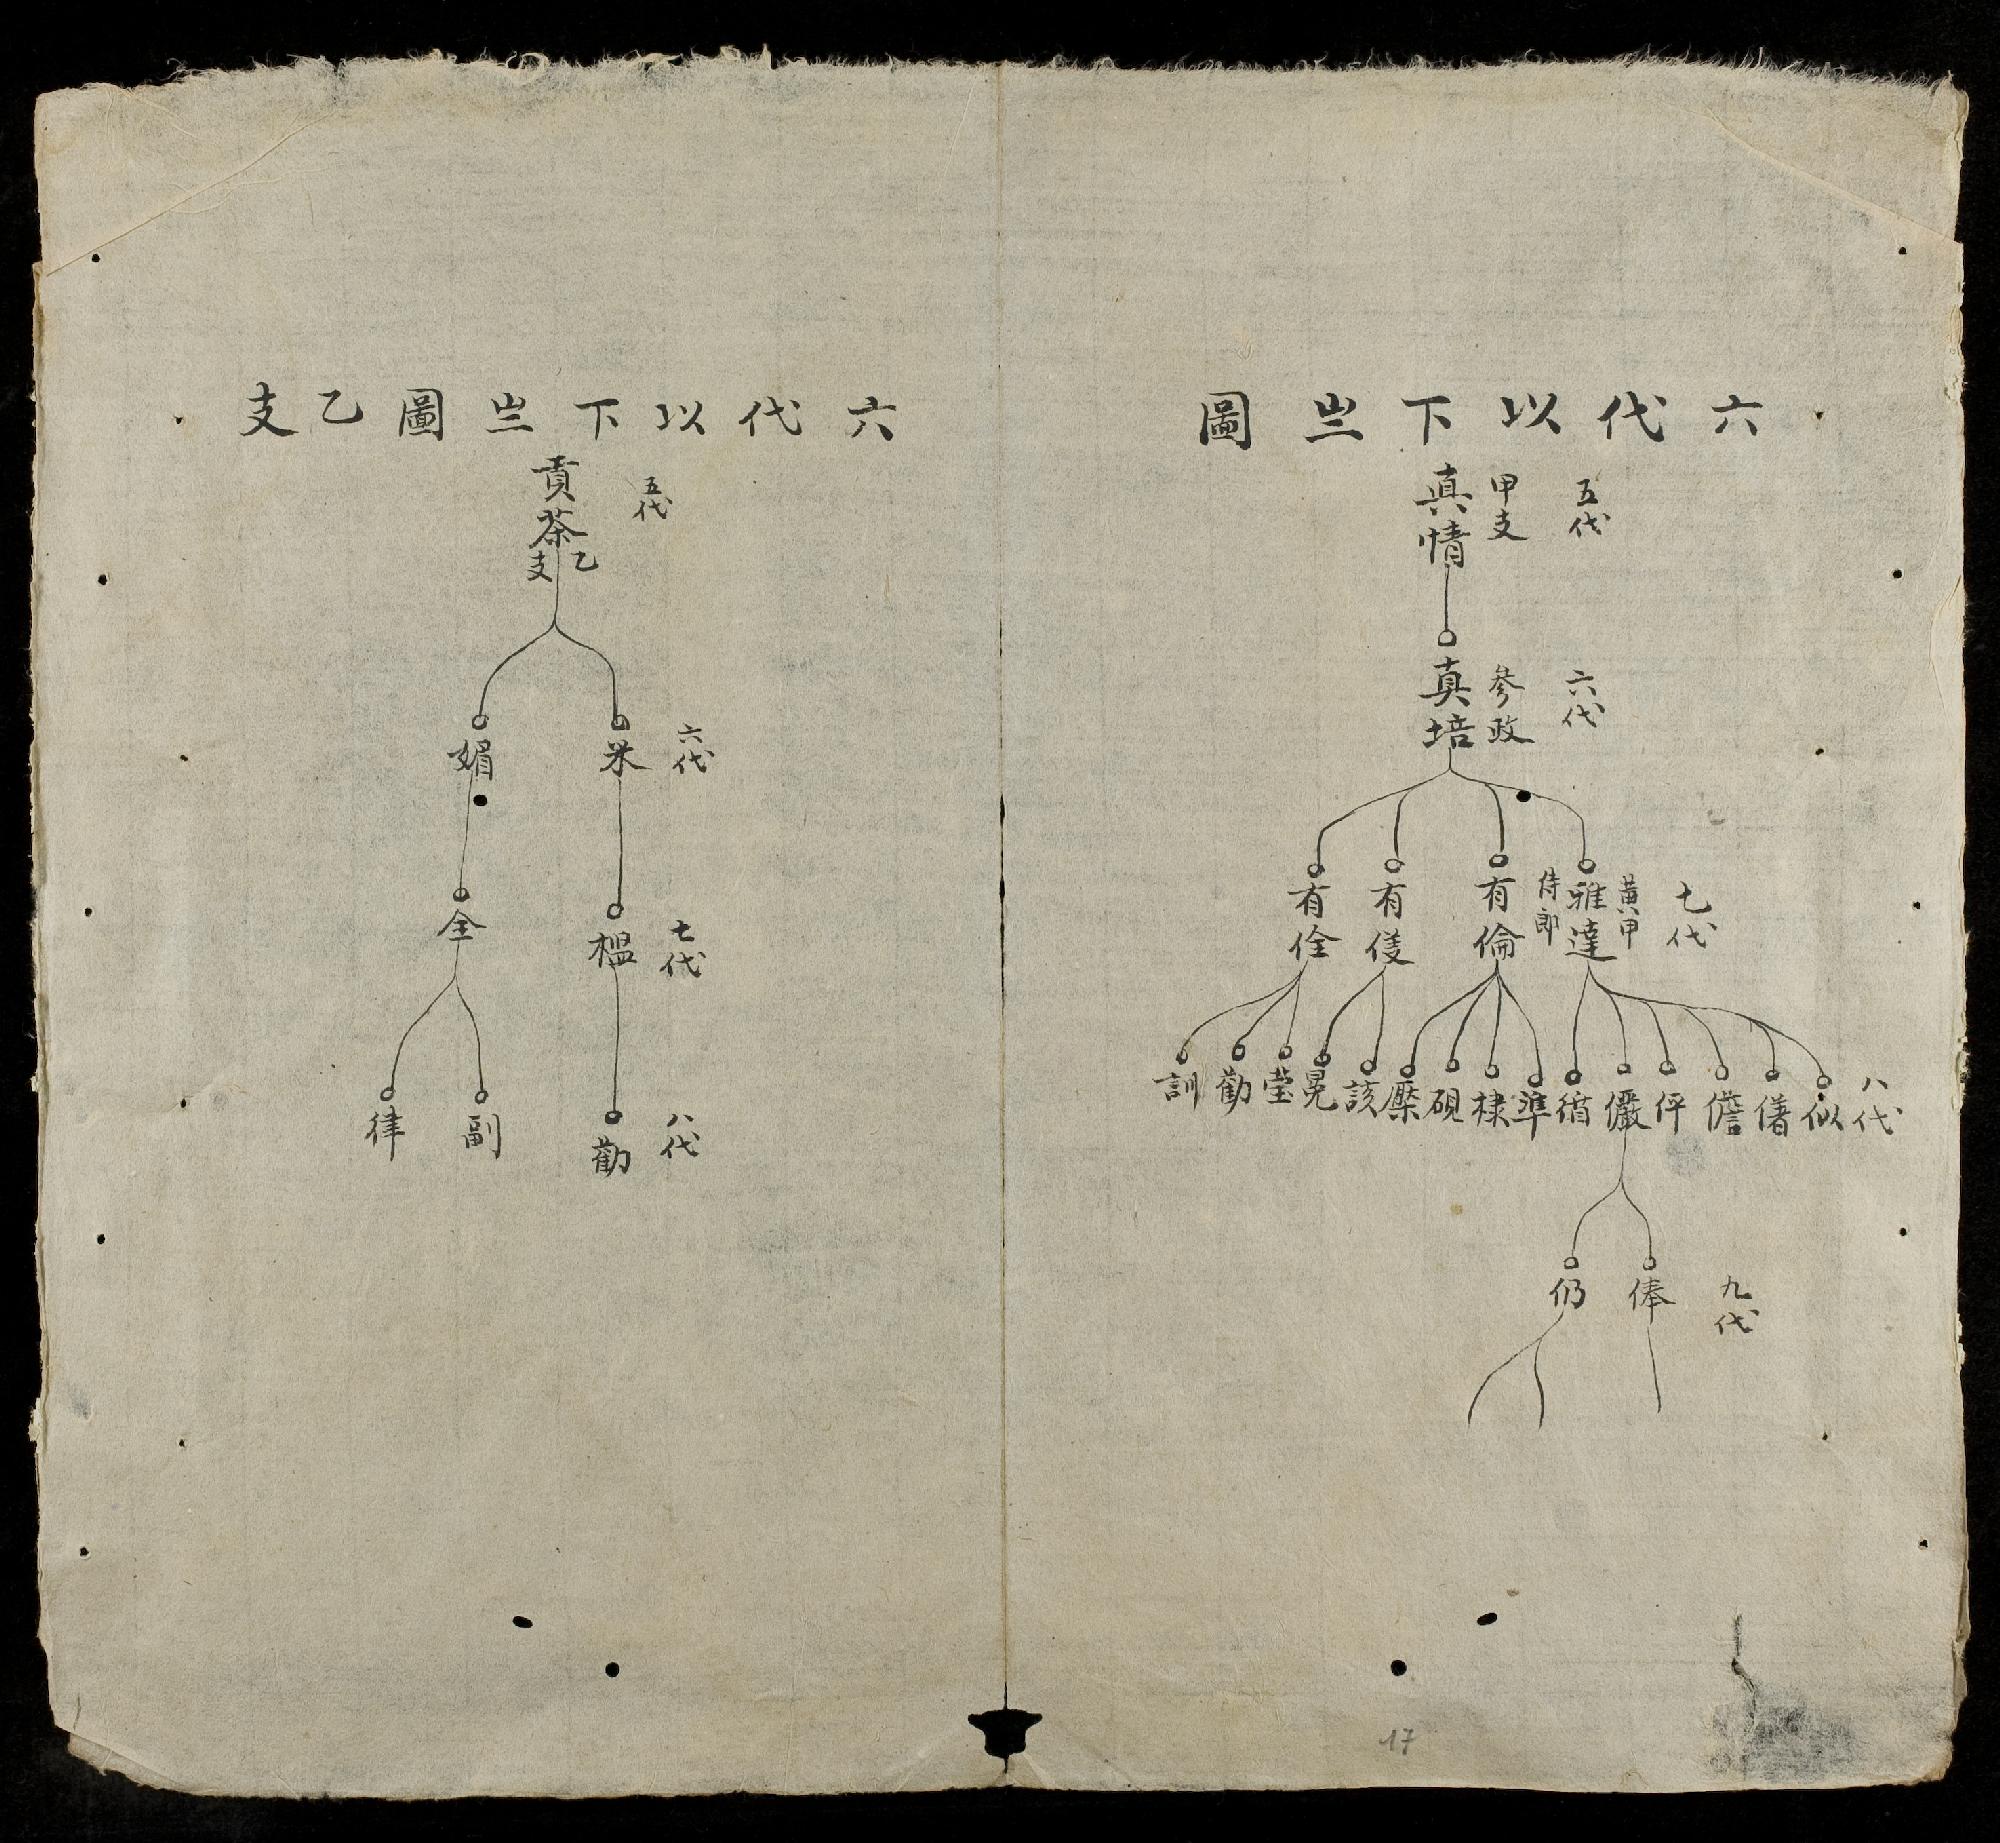 六代以下亗圖
五代
甲支
真情
六代
參政
真培
七代
黃甲
雅達
侍郎
有倫
有㑨
有佺
八代
似
㒂
儋
伻
儼
循
準
棣
硯
該
晃
瑩
勸
訓
九代
俸
仍
六代以下亗圖乙支
五代
貢茶
乙支
六代
媚
七代
榲
全
八代
勸
副
律
17